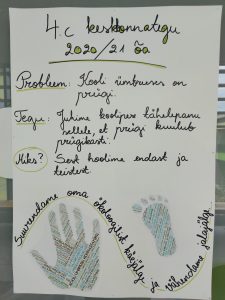 4.c keskonnategu
2020/21 õa
Probleem: Kooli ümbruses on
prügi.
Tegu: Juhime koolipere tähelepanu
sellele, et prügi kuulub
prügikasti.
Miks? Sest hoolime endast ja
teistest.
Suurendame oma ökoloogilist käejälge ja vähendame jalajälge.